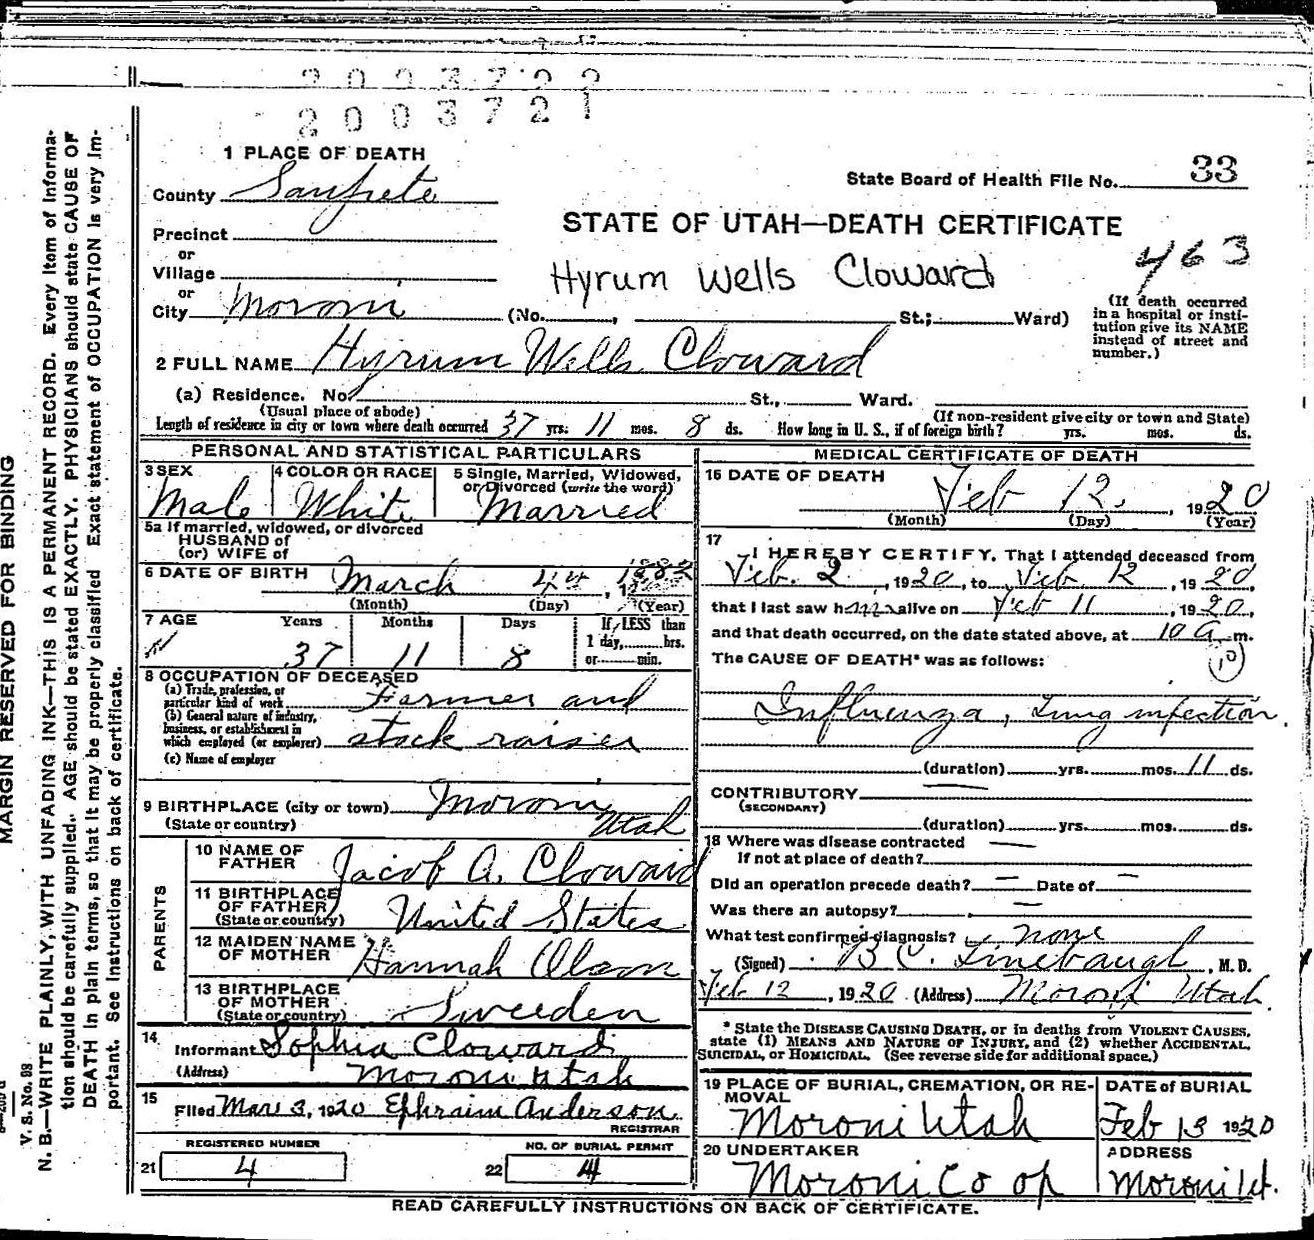 2003722
2003721
1 PLACE OF DEATH
State Board of Health File No. 33
County Sanpete
STATE OF UTAH—DEATH CERTIFICATE
Precinct
or
Village
Hyrum Wells Cloward
463
or
City Moroni (No. , St.; Ward)
(If death occurred in a hospital or insti-
tution give its NAME instead of street and number.)
2 FULL NAME Hyrum Wells Cloward
(a) Residence. No. St., Ward.
(Usual place of abode) (If non-resident give city or town and State)
Length of residence in city or town where death occurred 37 yrs. 11 mos. 8 ds. How long in U. S., if of foreign birth? yrs. mos. ds.
PERSONAL AND STATISTICAL PARTICULARS
3 SEX Male
4 COLOR OR RACE White
5 Single, Married, Widowed, or Divorced (write the word) Married
5a If married, widowed, or divorced
HUSBAND of
(or) WIFE of
6 DATE OF BIRTH March 4th, 1882
(Month) (Day) (Year)
7 AGE Years Months Days If LESS than
1 day, hrs.
37 11 8 or min.
8 OCCUPATION OF DECEASED
(a) Trade, profession, or particular kind of work Farmer and
(b) General nature of industry, business, or establishment in which employed (or employer) stock raiser
(c) Name of employer
9 BIRTHPLACE (city or town) Moroni
(State or country) Utah
PARENTS
10 NAME OF FATHER Jacob A. Cloward
11 BIRTHPLACE OF FATHER (State or country) United States
12 MAIDEN NAME OF MOTHER Hannah Olson
13 BIRTHPLACE OF MOTHER (State or country) Sweeden
14 Informant Sophia Cloward
(Address) Moroni Utah
15 Filed Mar 3, 1920 Ephraim Anderson
REGISTRAR
REGISTERED NUMBER
21 4
NO. OF BURIAL PERMIT
22 4
MEDICAL CERTIFICATE OF DEATH
16 DATE OF DEATH
Feb 12, 1920
(Month) (Day) (Year)
17 I HEREBY CERTIFY, That I attended deceased from
Feb. 2, 1920, to Feb 12, 1920
that I last saw him alive on Feb 11, 1920,
and that death occurred, on the date stated above, at 10 a m.
The CAUSE OF DEATH* was as follows:
10
Influenza, Lung infection
(duration) yrs. mos. 11 ds.
CONTRIBUTORY
(SECONDARY)
(duration) yrs. mos. ds.
18 Where was disease contracted
If not at place of death?
Did an operation precede death? — Date of —
Was there an autopsy? —
What test confirmed diagnosis? none
(Signed) B C. Linebaugh, M. D.
Feb 12, 1920 (Address) Moroni Utah
* State the DISEASE CAUSING DEATH, or in deaths from VIOLENT CAUSES,
state (1) MEANS AND NATURE OF INJURY, and (2) whether ACCIDENTAL,
SUICIDAL, or HOMICIDAL. (See reverse side for additional space.)
19 PLACE OF BURIAL, CREMATION, OR RE-
MOVAL
Moroni Utah
DATE of BURIAL
Feb 13 1920
20 UNDERTAKER
Moroni Co op
ADDRESS
Moroni Ut.
READ CAREFULLY INSTRUCTIONS ON BACK OF CERTIFICATE.
MARGIN RESERVED FOR BINDING
V. S. No. 98
N. B.—WRITE PLAINLY, WITH UNFADING INK—THIS IS A PERMANENT RECORD. Every item of informa-
tion should be carefully supplied. AGE should be stated EXACTLY. PHYSICIANS should state CAUSE OF
DEATH in plain terms, so that it may be properly classified Exact statement of OCCUPATION is very im-
portant. See instructions on back of certificate.